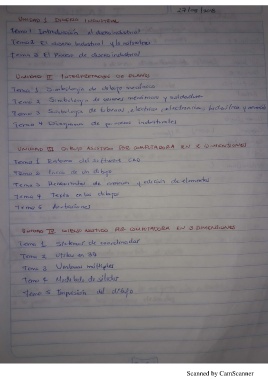 UNIDAD I DISEÑO INDUSTRIAL
Tema 1 Introducción al diseño industrial
Tema 2 El diseño industrial y la
Tema 3 El Proceso de diseño industrial
UNIDAD II INTERPRETACIÓN DE PLANOS
Tema 1 Simbología de dibujo mecánico
Tema 2 Simbología de uniones mecánicas y soldadura
Tema 3 Simbología de tuberías, eléctrica, electrónica, hidráulica y
Tema 4 Diagramas de procesos industriales
UNIDAD III DIBUJO ASISTIDO POR COMPUTADORA EN 2 DIMENSIONES
Tema 1 Entorno del software CAD
Tema 2 de un dibujo
Tema 3 Herramientas de creación y edición de elementos
Tema 4 Texto en un dibujo
Tema 5
UNIDAD IV DIBUJO ASISTIDO POR COMPUTADORA EN 3 DIMENSIONES
Tema 1 Sistemas de coordenadas
Tema 2 en 3D
Tema 3 Ventanas múltiples
Tema 4 Modelado de sólidos
Tema 5 Impresión del dibujo
Scanned by CamScanner